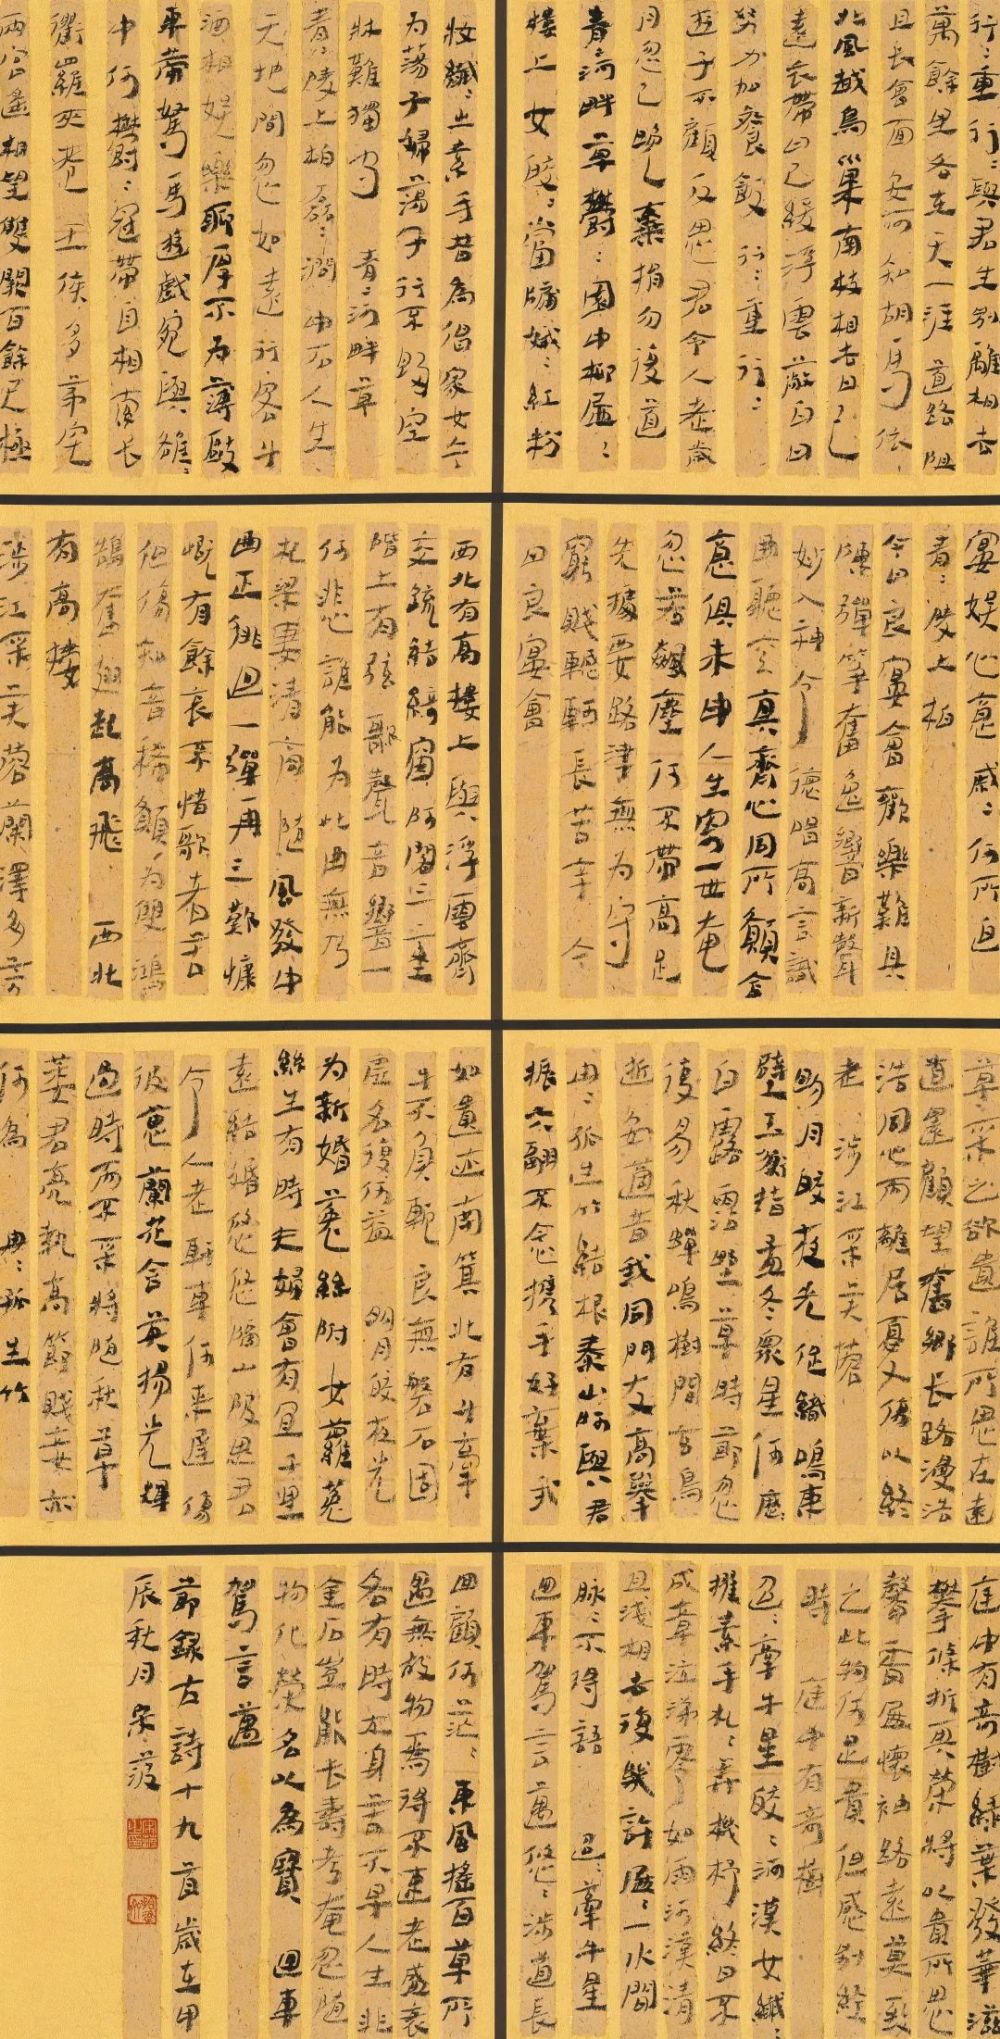 行〻重行〻與君生別離相去
萬餘里各在天一涯道路阻
且長會面安可知胡馬依
北風越鳥巢南枝相去日已
遠衣帶日已緩浮雲蔽白日
努力加餐飯 行〻重行〻
遊子不顧反思君令人老歲
月忽已晚棄捐勿復道
青河畔草鬱〻園中柳盈〻
樓上女皎〻當牖娥〻紅粉
妝纖〻出素手昔為倡家女今
為蕩子婦蕩子行不歸空
牀難獨守 青〻河畔草
青〻陵上柏磊〻澗中石人生
天地間忽如遠行客斗
酒相娛樂聊厚不為薄驅
車策駑馬遊戲宛與雒〻
中何鬱〻冠帶自相索長
衢羅夾巷王侯多第宅
兩宮遙相望雙闕百餘尺極
宴娛心意戚〻何所迫
青〻陵上柏
今日良宴會歡樂難具
陳彈箏奮逸響新聲
妙入神令德唱高言識
曲聽其真齊心同所願含
意俱未申人生寄一世奄
忽若飆塵何不策高足
先據要路津無為守
窮賤轗軻長苦辛 今
日良宴會
西北有高樓上與浮雲齊
交疏結綺窗阿閣三重
階上有弦歌聲音響一
何悲誰能為此曲無乃
杞梁妻清商隨風發中
曲正徘徊一彈再三歎慷
慨有餘哀不惜歌者苦
但傷知音稀願為雙鴻
鵠奮翅起高飛 西北
有高樓
涉江采芙蓉蘭澤多芳
草采之欲遺誰所思在遠
道還顧望舊鄉長路漫浩
浩同心而離居憂傷以終
老 涉江采芙蓉
明月皎夜光促織鳴東
壁玉衡指孟冬眾星何歷
白露霑野草時節忽
復易秋蟬鳴樹間玄鳥
逝安適昔我同門友高舉
冉〻孤生竹結根泰山阿與君
振六翮不念攜手好棄我
如遺跡南箕北有斗牽
牛不負軛良無磐石固
虛名復何益 明月皎夜光
為新婚菟絲附女蘿菟
絲生有時夫婦會有宜千里
遠結婚悠悠隔山陂思君
令人老軒車何來遲傷
彼蕙蘭花含英揚光輝
過時而不采將隨秋草
萎君亮執高節賤妾亦
何為 冉〻孤生竹
庭中有奇樹綠葉發華滋
攀條折其榮將以遺所思
馨香盈懷袖路遠莫致
之此物何足貴但感別經
時 庭中有奇樹
迢〻牽牛星皎〻河漢女纖〻
擢素手札〻弄機杼終日不
成章泣涕零如雨河漢清
且淺相去復幾許盈〻一水間
脈〻不得語 迢〻牽牛星
迴車駕言邁悠〻涉道長
四顧何茫〻東風搖百草所
遇無故物焉得不速老盛衰
各有時立身苦不早人生非
金石豈能長壽考奄忽隨
物化榮名以為寶 迴車
駕言邁
節錄古詩十九首歲在甲
辰秋月宋